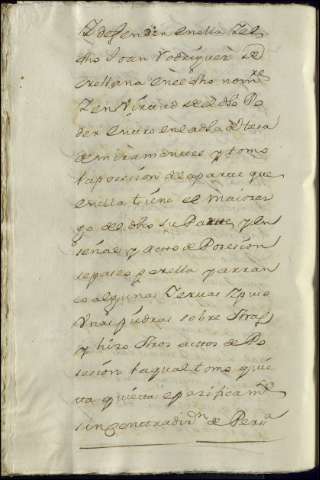 Y defender en ella el
dho Joan Rodriguez de
orellana en el dho nombre
Y en Virtud del dho Po
der entro en la dha dehesa
de miramontes y tomo
la posesion de la parte que
en ella tiene el maioraz
go del dho su Parte y en
señal y acto de Posesion
se paseo por ella y arran
co algunas Yervas Y puso
Unas piedras sobre otras
y hizo otros actos de Po
sesion la qual tomo quie
ta quieta e pacificamte
sin contradicn de Persa